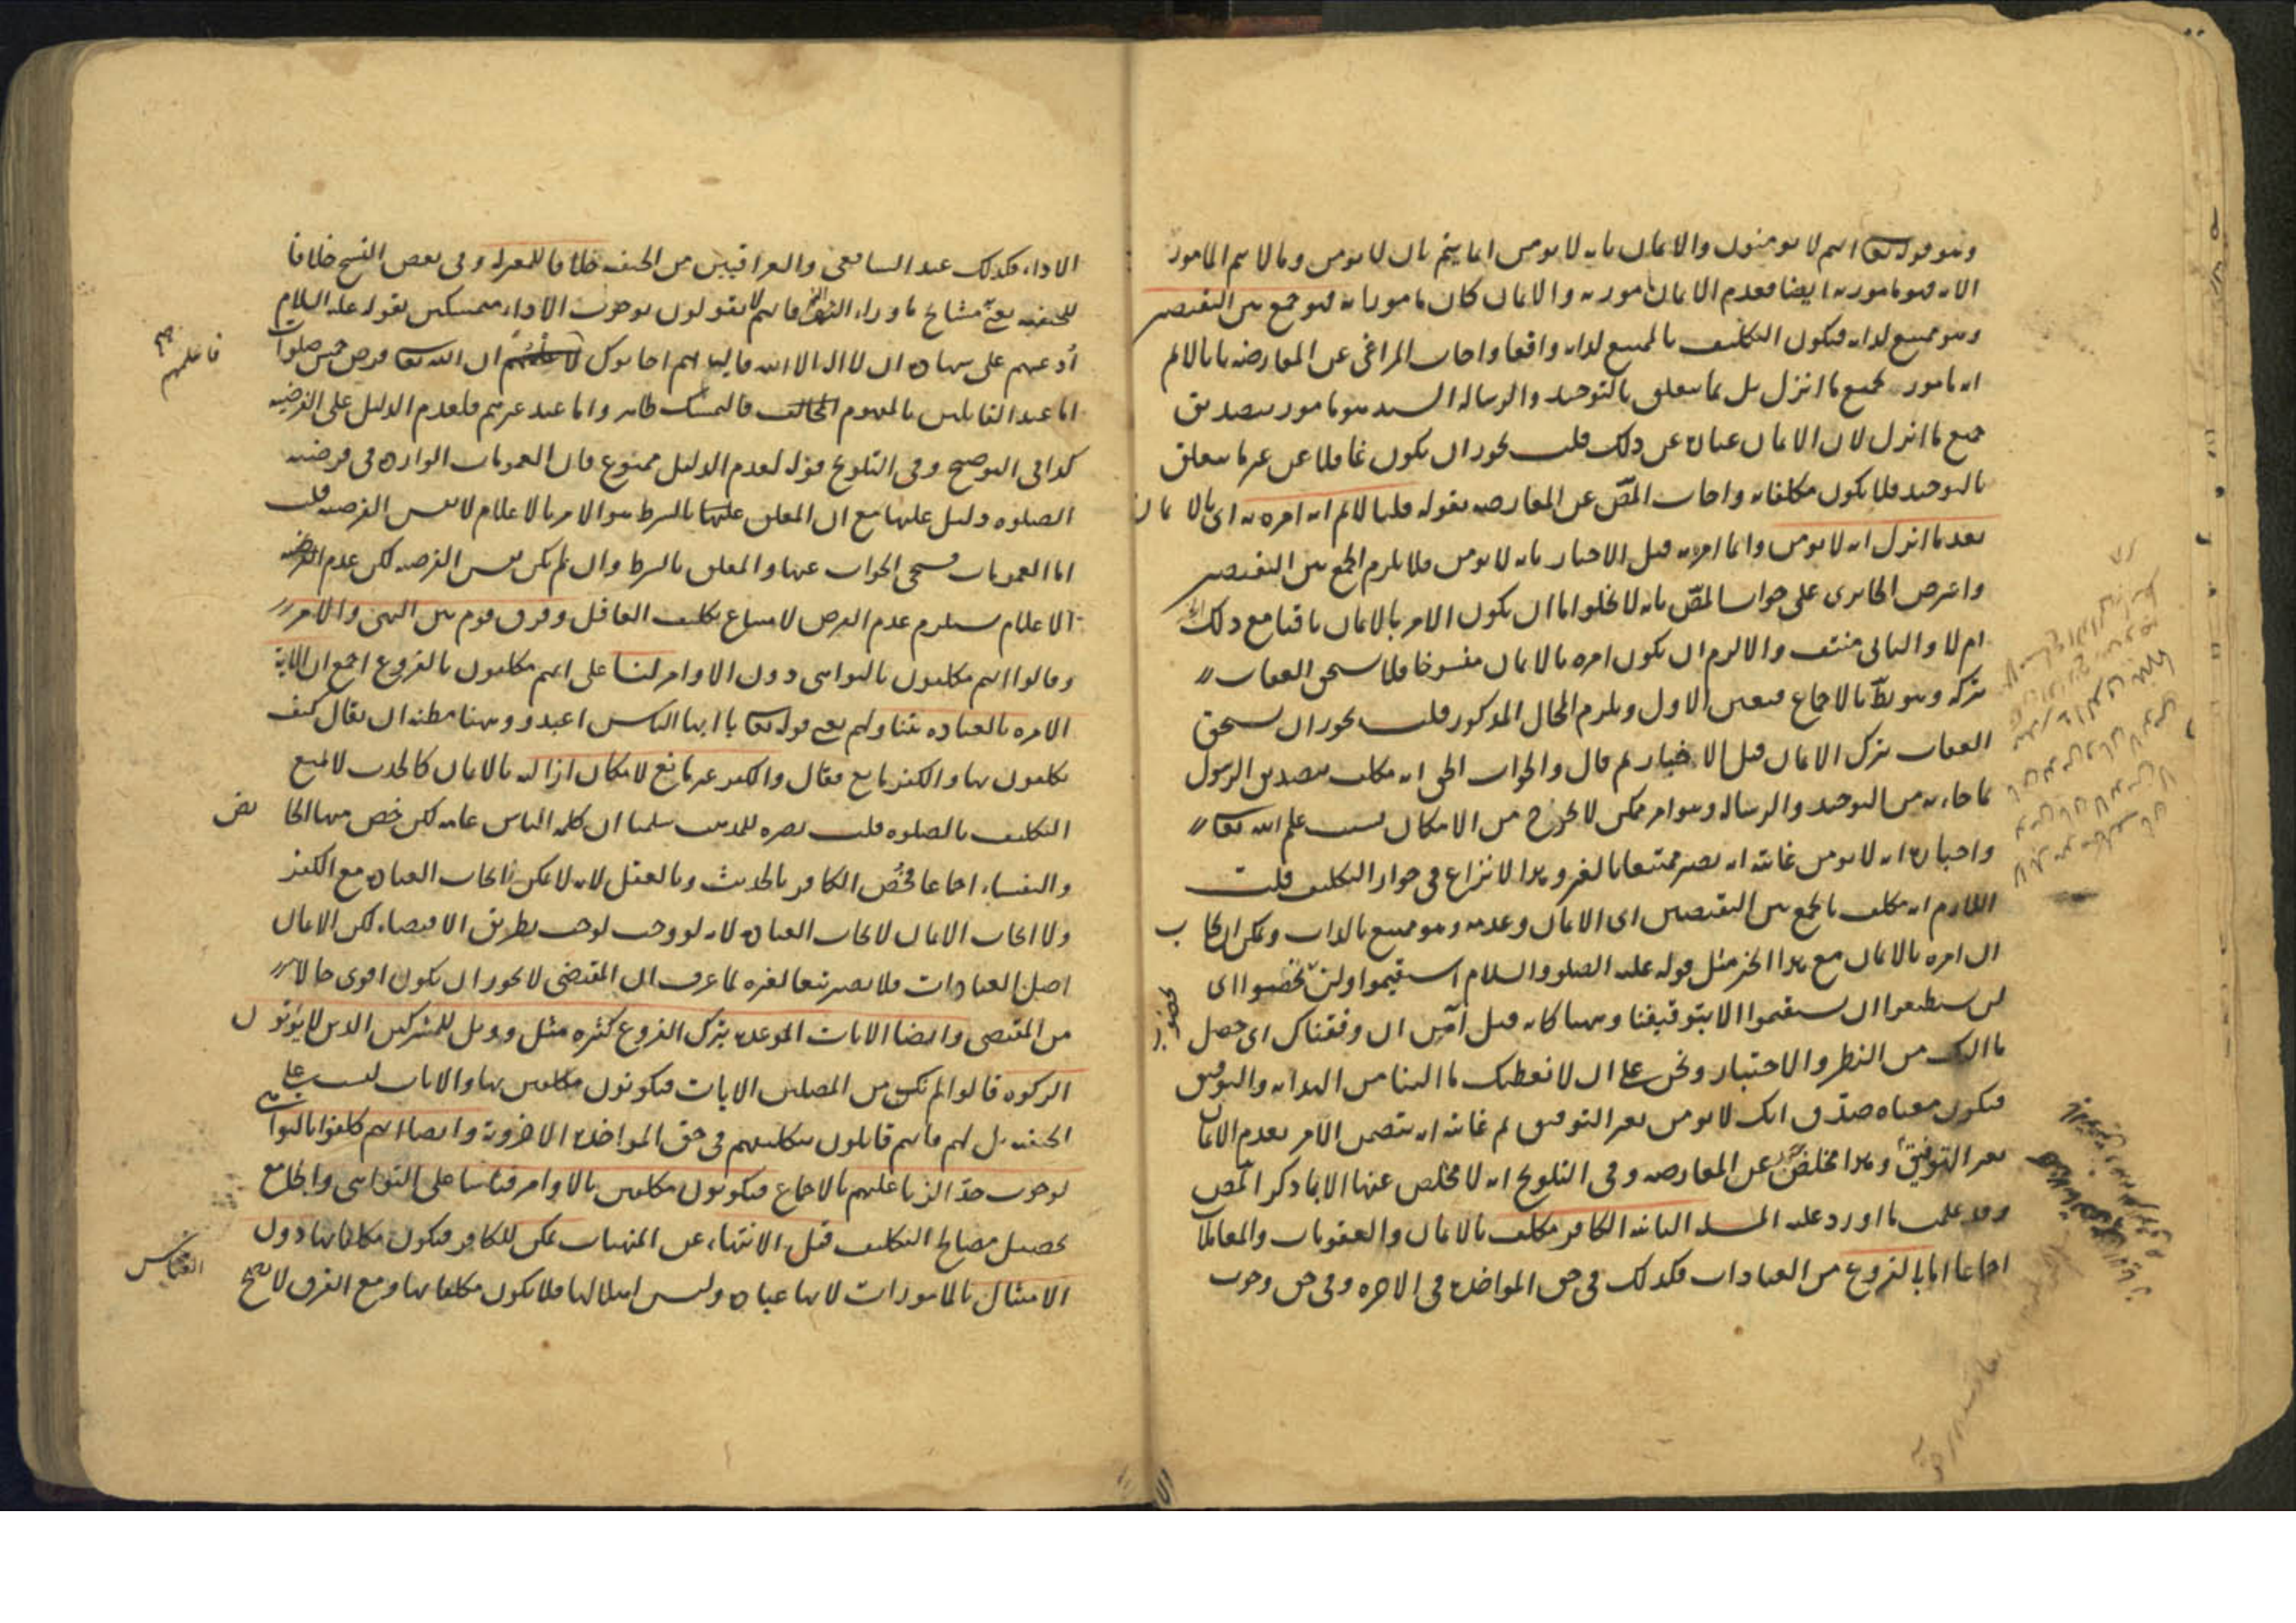 وهو قوله تعا انهم لا يومنون والايمان بانه لا يومن انما يتم بان لا يومن وما لا يتم المامور
الا به فهو مامور به ايضا فعدم الايمان مامور به والايمان كان مامورا به فهو جمع بين النقيضين
وهو ممتنع لذاته فيكون التكليف بالممتنع لذاته واقعا واجاب المراغي عن المعارضه بانا لا نم
انه مامور بجميع ما انزل بل بما يتعلق بالتوحيد والرساله السيد هو مامور بتصديق
جميع ما انزل لان الايمان عبارة عن ذلك قلت يجوز ان يكون غافلا عن غير ما يتعلق
بالتوحيد فلا يكون مكلفا به واجاب المصّ عن المعارضه بقوله قلنا لا نم انه امره به اى بالايمان
بعد ما انزل انه لا يومن وانما امر به قبل الاخبار بانه لا يومن فلا يلزم الجمع بين النقيضين
واعترض الجابردى على جواب المصّ بانه لا يخلو اما ان يكون الامر بالايمان باقيا مع ذلك
ام لا والثانى منتف والا لزم ان يكون امره بالايمان منسوخا فلا يستحق العقاب
بتركه وهو بطّ بالاجماع فتعين الاول ويلزم المحال المذكور قلت يجوز ان يستحق
العقاب بترك الايمان قبل الاخبار ثم قال والجواب الحق انه مكلف بتصديق الرسول
بما جاء به من التوحيد والرساله وهو امر ممكن لا يخرج من الامكان بسبب علم الله تعا
واخباره انه لا يومن غايته انه يصير ممتنعا بالغير وهذا لا نزاع فى جواز التكليف قلت
اللازم انه مكلف بالجمع بين النقيضين اى الايمان وعدمه وهو ممتنع بالذات ويمكن ان يجاب
ان امره بالايمان مع هذا الخبر مثل قوله عليه الصلو والسلام استقيموا ولن تحصوا اى
لن تستطيعوا ان تستقيموا الا بتوفيقنا وههنا كانه قيل آمن ان وفقناك اى حصل
ما اليك من النظر والاختيار ونحن علي ان لا نعطيك ما الينا من الهدايه والتوفيق
فيكون معناه صدّق انك لا يومن بغير التوفيق ثم غايته انه يتضمن الامر بعدم الايمان
بغير التوفيق وهذا مخلص عن المعارضه وفى التلويح انه لا مخلص عنها الا بما ذكر المّص
وقد علمت ما اورد عليه المسله الثانيه الكافر مكلف بالايمان والعقوبات والمعاملا
اجماعا اما بالفروع من العبادات فكذلك فى حق المواخذة فى الاخره وفى حق وجوب
الاداء فكذلك عند الشافعى والعراقيين من الحنفيه خلافا للمعتزله وفى بعض النسخ خلافا
للحنفيه يعنى مشايخ ما وراء النهر فانهم لا يقولون بوجوب الاداء متمسكين بقوله عليه السلام
أدعهم على شهادة ان لا اله الا الله فاليها انهم اجابوك ان الله تعا فرض خمس صلوات
فاعلمهم
اما عند القائلين بالمفهوم المخالف فالتمسك ظاهر واما عند غيرهم فلعدم الدليل على الفرضيه
كذا فى التوضيح وفى التلويح قوله لعدم الدليل ممنوع فان العمومات الوارده فى فرضيه
الصلوه دليل عليها مع ان المعلق عليها بالشرط هو الامر بالاعلام لا نفس الفرضيه قلت
اما العمومات فسيجى الجواب عنها والمعلق بالشرط وان لم يكن نفس الفرضيه لكن عدم الفرضيه
الاعلام يستلزم عدم الفرض لامتناع تكليف الغافل وفرق قوم بين النهى والامر
وقالوا انهم مكلفون بالنواهى دون الاوامر لنا على انهم مكلفون بالفروع اجمع ان الاية
الامره بالعباده يتناولهم يعنى قوله تعا يا ايها الناس اعبدو وههنا مظنه ان يقال كيف
يكلفون بها والكفر مانع فقال والكفر غير مانع لامكان ازالته بالايمان كالحدث لا يمنع
التكليف بالصلوه قلت نصره للمذهب سلمنا ان كلمه الناس عامه لكن خص منها الحايض
والنفساء اجماعا فخُصّ الكافر بالحديث وبالعقل لانه لا يمكن ايجاب العبادة مع الكفر
ولا ايجاب الايمان لايجاب العبادة لانه لو وجب لوجب بطريق الاقتضاء لكن الايمان
اصل العبادات فلا يصير تبعا لغيره لما عرف ان المقتضى لا يجوز ان يكون اقوى حالا
من المقتضى وايضا الايات الموعده بترك الفروع كثيره مثل وويل للمشركين الذين لا يؤتون
الزكوه قالوا لم نك من المصلين الايات فيكونون مكلفين بها والايات ليست على
الحنفيه بل لهم فانهم قايلون بتكليفهم فى حق المواخذة الاخروية وايضا انهم كلفوا بالنواهى
لوجوب حدّ الزنا عليهم بالاجماع فيكونون مكلفين بالاوامر قياسا على النواهى والجامع
تحصيل مصالح التكليف قيل الانتهاء عن المنهيات يمكن للكافر فيكون مكلفا بها دون
الامتثال بالمامورات لانها عبادة وليس اهلا لها فلا يكون مكلفا بها ومع الفرق لا يصح
القياس